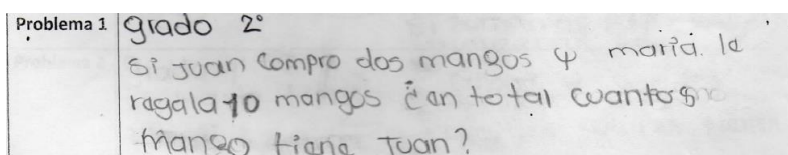 Problema 1
grado 2°
Si Juan compro dos mangos y maria. le
ragala 10 mangos en total cuantos
mango tiene Juan?